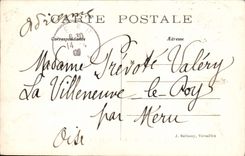 CARTE POSTALE
Correspondance
Adresse
Madame Prevotte Valéry
La Villeneuve - le - Roy
par Méru
Oise